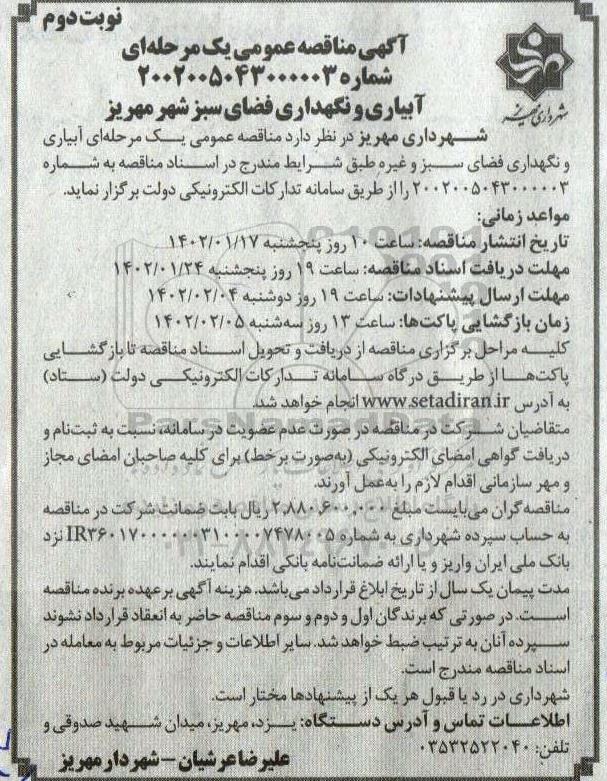 نوبت دوم
آگهی مناقصه عمومی یک مرحله‌ای
شماره ۲۰۰۲۰۰۵۰۴۳۰۰۰۰۰۳
آبیاری و نگهداری فضای سبز شهر مهریز
شهرداری مهریز
شهرداری مهریز در نظر دارد مناقصه عمومی یک مرحله‌ای آبیاری
و نگهداری فضای سبز و غیره طبق شرایط مندرج در اسناد مناقصه به شماره
۲۰۰۲۰۰۵۰۴۳۰۰۰۰۰۳ را از طریق سامانه تدارکات الکترونیکی دولت برگزار نماید.
مواعد زمانی:
تاریخ انتشار مناقصه: ساعت ۱۰ روز پنجشنبه ۱۴۰۲/۰۱/۱۷
مهلت دریافت اسناد مناقصه: ساعت ۱۹ روز پنجشنبه ۱۴۰۲/۰۱/۲۴
مهلت ارسال پیشنهادات: ساعت ۱۹ روز دوشنبه ۱۴۰۲/۰۲/۰۴
زمان بازگشایی پاکت‌ها: ساعت ۱۳ روز سه‌شنبه ۱۴۰۲/۰۲/۰۵
کلیه مراحل برگزاری مناقصه از دریافت و تحویل اسناد مناقصه تا بازگشایی
پاکت‌ها از طریق درگاه سامانه تدارکات الکترونیکی دولت (ستاد)
به آدرس www.setadiran.ir انجام خواهد شد.
متقاضیان شرکت در مناقصه در صورت عدم عضویت در سامانه، نسبت به ثبت‌نام و
دریافت گواهی امضای الکترونیکی (به‌صورت برخط) برای کلیه صاحبان امضای مجاز
و مهر سازمانی اقدام لازم را به‌عمل آورند.
مناقصه‌گران می‌بایست مبلغ ۲,۸۸۰,۶۰۰,۰۰۰ ریال بابت ضمانت شرکت در مناقصه
به حساب سپرده شهرداری به شماره IR۳۶۰۱۷۰۰۰۰۰۰۰۳۱۰۰۰۰۷۴۷۸۰۰۵ نزد
بانک ملی ایران واریز و یا ارائه ضمانت‌نامه بانکی اقدام نمایند.
مدت پیمان یک سال از تاریخ ابلاغ قرارداد می‌باشد. هزینه آگهی بر عهده برنده مناقصه
است. در صورتی که برندگان اول و دوم و سوم مناقصه حاضر به انعقاد قرارداد نشوند
سپرده آنان به ترتیب ضبط خواهد شد. سایر اطلاعات و جزئیات مربوط به معامله در
اسناد مناقصه مندرج است.
شهرداری در رد یا قبول هر یک از پیشنهادها مختار است.
اطلاعات تماس و آدرس دستگاه: یزد، مهریز، میدان شهید صدوقی و
تلفن: ۰۳۵۳۲۵۲۲۰۴۰
علیرضا عرشیان - شهردار مهریز
ParsNamadData